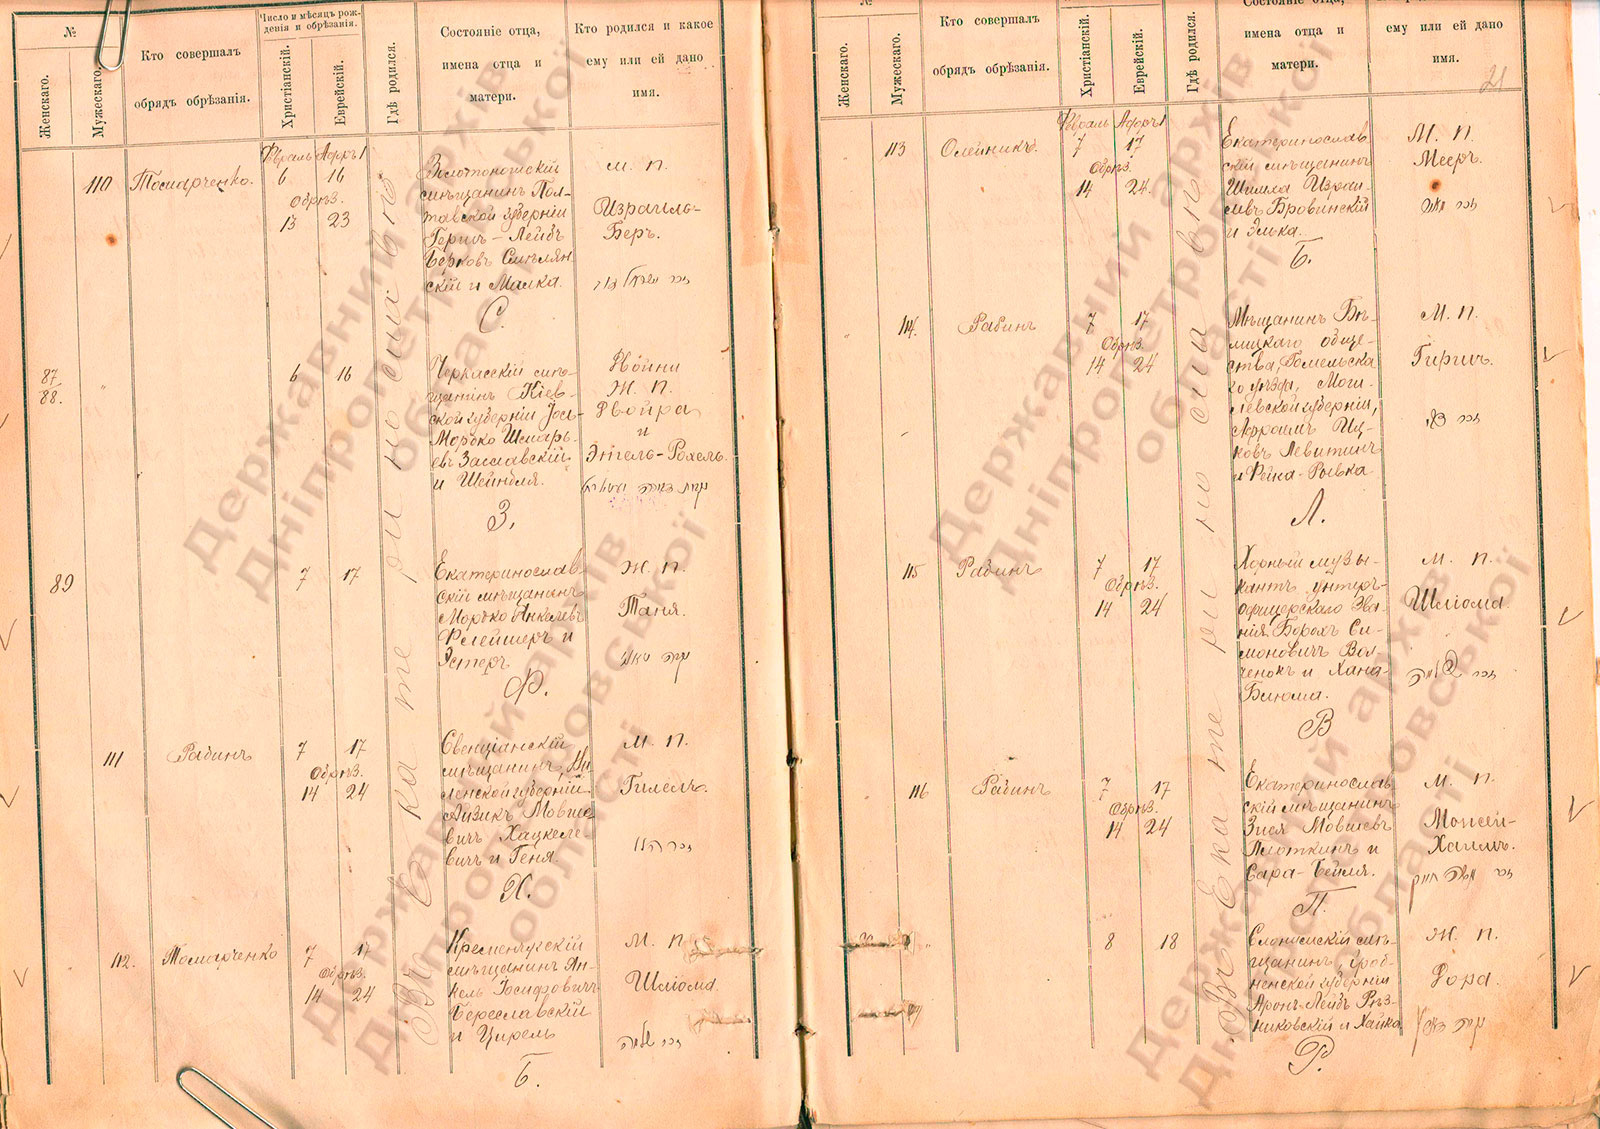 №
Женскаго.
Мужескаго.
Кто совершалъ
обрядъ обрѣзанія.
Число и мѣсяцъ рож-
денія и обрѣзанія.
Христіанскій.
Еврейскій.
Гдѣ родился.
Состояніе отца,
имена отца и
матери.
Кто родился и какое
ему или ей дано
имя.
110
Февраль Адаръ 1
6 16
Обрѣз.
13 23
Золотоношскій
мѣщанинъ Пол-
тавской губерніи
Гершъ-Лейбъ
Берковъ Смѣлян
скій и Малка.
С.
М. П.
Израиль-
Беръ.
87
88.
6 16
Черкасскій мѣ-
щанинъ Кіев-
ской губерніи Іось
Мордко Шмарь-
евъ Заславскій
и Шейндля.
З.
Двойни
Ж. П.
Двойра
и
Энгель-Рохель.
89
7 17
Екатеринослав
скій мѣщанинъ
Мордко Анкелевъ
Флейшеръ и
Эстеръ
Ф.
Ж. П.
Таня.
111
Рабинъ
7 17
Обрѣз.
14 24
Свенціанскій
мѣщанинъ, Ви
ленской губерніи
Айзикъ Мовше
вичъ Хацкеле-
вичъ и Геня.
Х.
М. П.
Гилель.
זכר הלל
112.
Томарченко
7 17
Обрѣз.
14 24
Кременчугскій
мѣщанинъ Ян-
кель Іосифовичъ
Береславскій
и Цирель
Б.
М. П.
Шліома.
זכר שלמה
Въ Екатеринославѣ
№
Женскаго.
Мужескаго.
Кто совершалъ
обрядъ обрѣзанія.
Христіанскій.
Еврейскій.
Гдѣ родился.
Состояніе отца,
имена отца и
матери.
ему или ей дано
имя.
21
113
Олейникъ.
Февраль Адаръ 1
7 17
Обрѣз.
14 24
Екатеринослав
скій мѣщанинъ
Шимха Израи
левъ Бровинскій
и Элька.
Б.
М. П.
Мееръ.
זכר מאיר
114.
Рабинъ
7 17
Обрѣз.
14 24
Мѣщанинъ Бѣ-
лицкаго обще-
ства, Гомельска
го уѣзда, Моги-
левской губерніи,
Афроимъ Иц-
ковъ Левитинъ
и Фейга-Рывка
Л.
М. П.
Гиршъ.
זכר צבי
115
Рабинъ
7 17
Обрѣз.
14 24
Хорный музы-
кантъ унтеръ
офицерскаго зва-
нія Борохъ Си-
моновичъ Вол
ченокъ и Хана-
Блюма.
В
М. П.
Шліома.
116
Рабинъ
7 17
Обрѣз.
14 24
Екатеринослав
скій мѣщанинъ
Зися Мовшевъ
Плоткинъ и
Сара-Бейля.
П.
М. П.
Моисей-
Хаимъ.
זכר משה חיים
8 18
Слонимскій мѣ-
щанинъ, Грод-
ненской губерніи
Аронъ-Лейбъ Рѣз-
никовскій и Хайка
Р.
Ж. П.
Дора.
Въ Екатеринославѣ
Державний архів
Дніпропетровської
області
Державний архів
Дніпропетровської
області
Державний архів
Дніпропетровської
області
Державний архів
Дніпропетровської
області